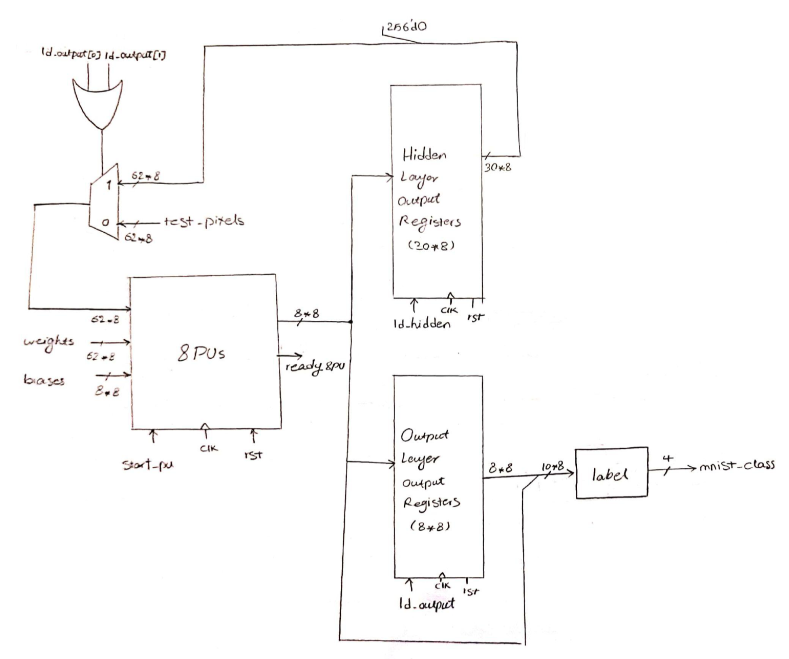 256'd0
ld_output[0] ld_output[1]
1
62*8
0
test_pixels
62*8
Hidden
Layer
output
Registers
(30*8)
30*8
ld_hidden
clk
rst
62*8
weights
62*8
biases
8*8
8PUs
8*8
ready 8pu
start_pu
clk
rst
Output
Layer
output
Registers
(8*8)
8*8
10*8
label
4
mnist_class
ld_output
clk
rst